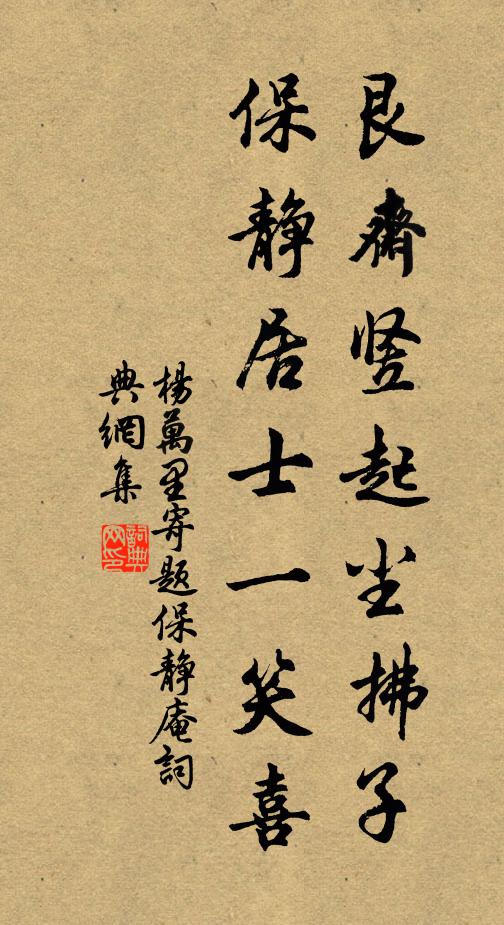 艮齋竖起尘拂子
保静居士一笑喜
楊萬里寄题保静庵詞
典網集
詞典
网印